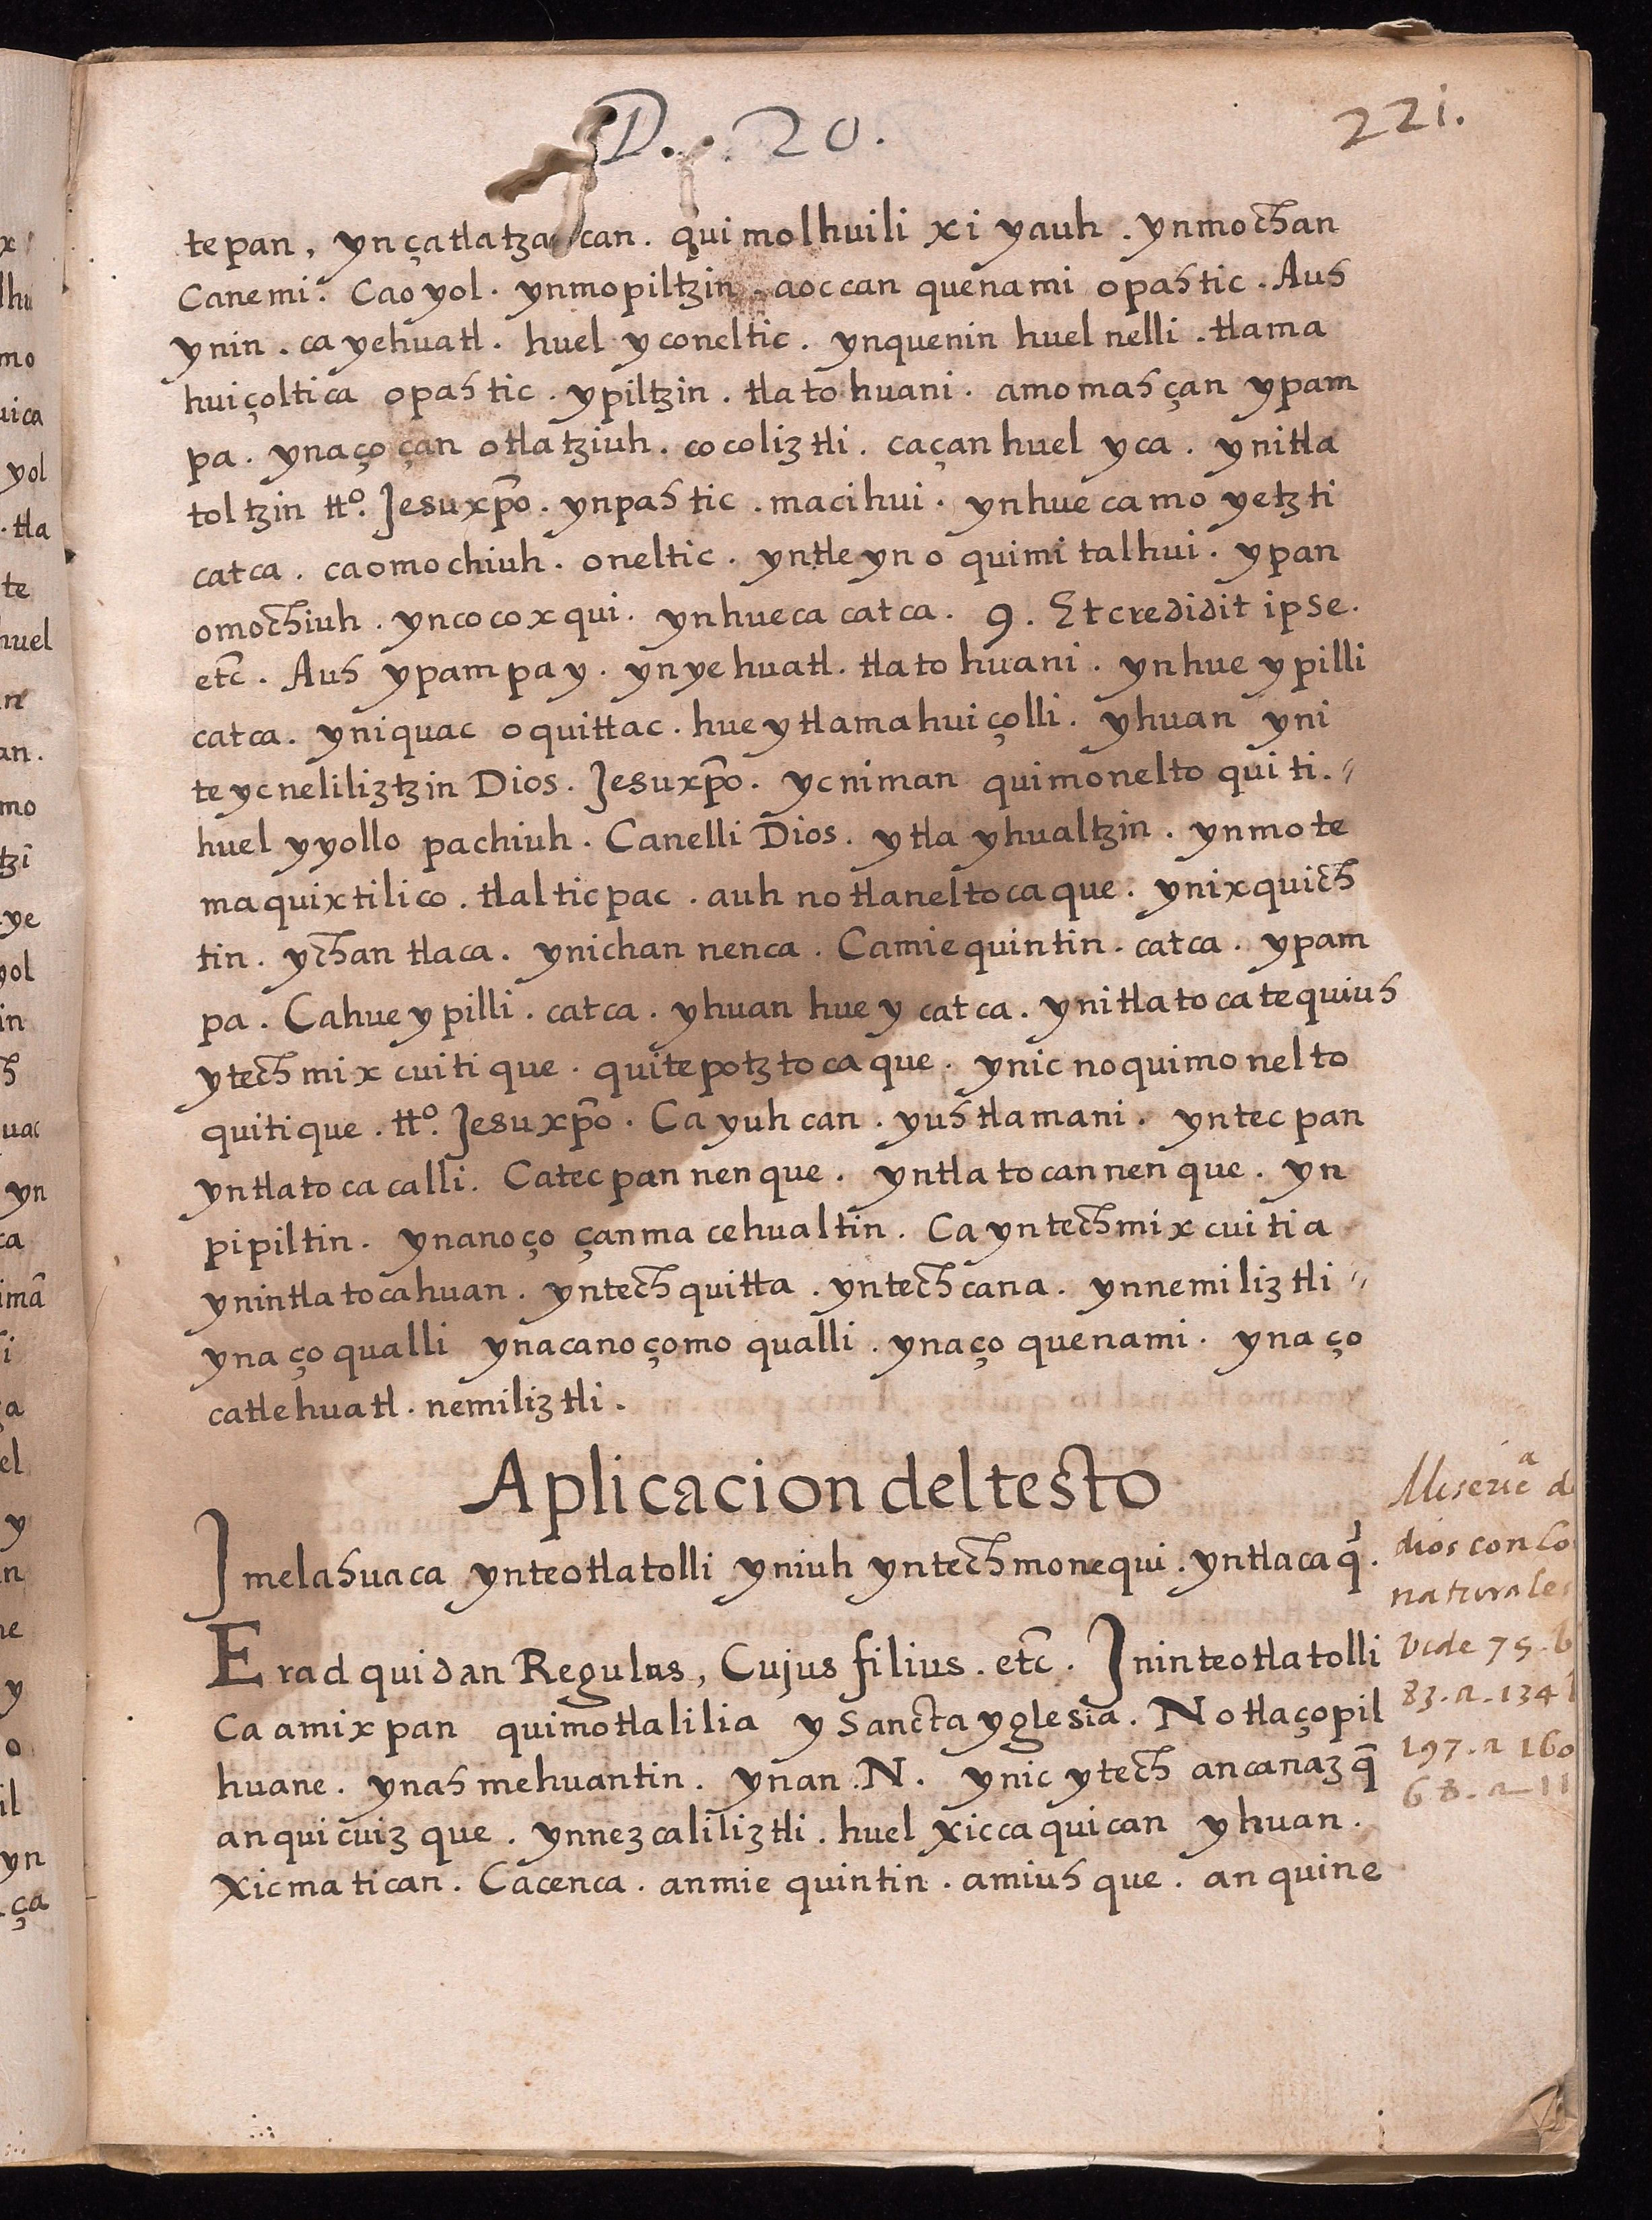 D. . 20.
221.
tepan, ynçatlatzaccan. quimolhuili xi yauh. ynmochan
Canemi. Caoyol. ynmopiltzin. aoccan quenami opahtic. Auh
ynin. ca yehuatl. huel yconeltic. ynquenin huel nelli. tlama
huiçoltica opahtic. ypiltzin. tlatohuani. amomahçan ypam
pa. ynaçoçan otlatziuh. cocoliztli. caçanhuel yca. ynitla
toltzin tto. Jesuxpo. ynpahtic. macihui. ynhuecamo yetzti
catca. caomochiuh. oneltic. yntleyno quimitalhui. ypan
omochiuh. yncocoxqui. ynhueca catca. 9. Et credidit ipse.
etc. Auh ypampay. ynyehuatl. tlatohuani. ynhueypilli
catca. yniquac oquittac. hueytlamahuiçolli. yhuan yni
teycneliliztzin Dios. Jesuxpo. ycniman quimoneltoquiti.
huel yyollo pachiuh. Canelli Dios. ytlayhualtzin. ynmote
maquixtilico. tlalticpac. auh notlaneltocaque. ynixquich
tin. ychan tlaca. ynichan nenca. Camiequintin. catca. ypam
pa. Cahueypilli. catca. yhuan huey catca. ynitlatocatequiuh
ytechmixcuitique. quitepotztocaque. ynic noquimonelto
quitique. tto. Jesuxpo. Ca yuhcan. yuhtlamani. yntecpan
yntlatocacalli. Catecpannenque. yntlatocannenque. yn
pipiltin. ynanoço çanmacehualtin. Ca yntechmixcuitia
ynintlatocahuan. yntechquitta. yntechcana. ynnemiliztli
ynaçoqualli ynacanoçomo qualli. ynaço quenami. ynaço
catlehuatl. nemiliztli.
Aplicacion deltesto
Jmelahuaca ynteotlatolli yniuh yntechmonequi. yntlacaq̃.
Erad quidan Regulus, Cujus filius. etc. Jninteotlatolli
Ca amixpan quimotlalilia y Sancta yglesia. Notlaçopil
huane. ynahmehuantin. ynan. N. ynic ytech ancanazq̃
anquicuizque. ynnezcaliliztli. huel xiccaquican yhuan.
Xicmatican. Cacenca. anmiequintin. amiuhque. anquine
Miserica d
dios con lo
naturales
Vide 75. b
83. a. 134
197. a 160
68. a 11